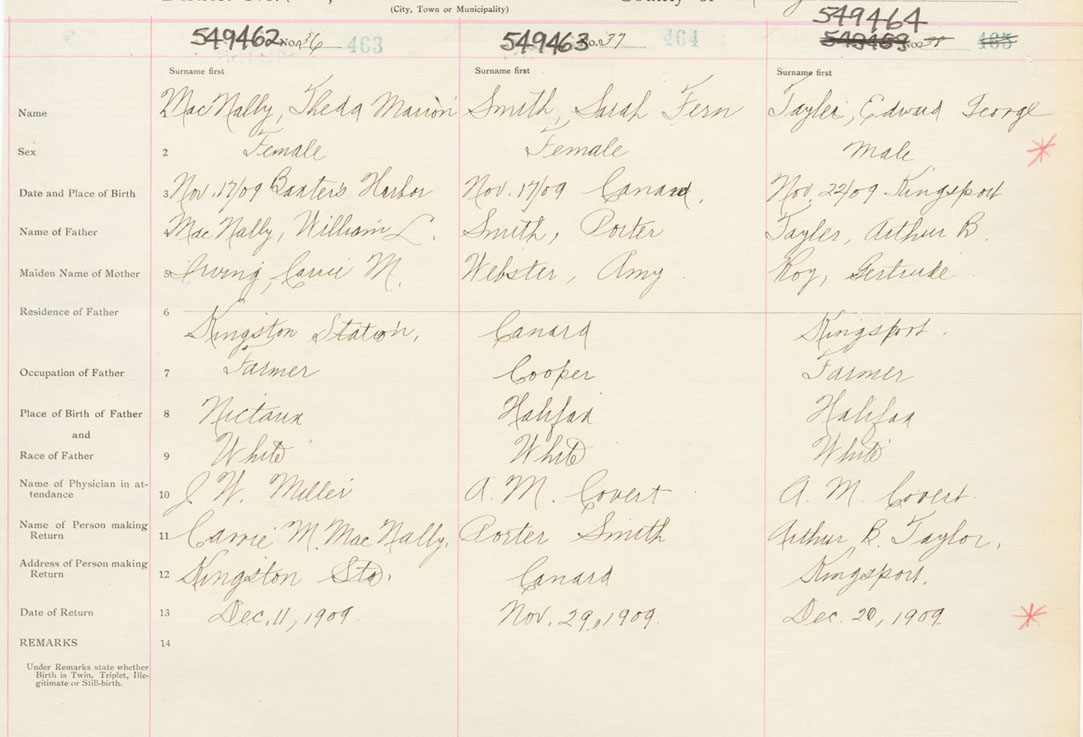 (City, Town or Municipality)
549464
549462 No. 36 463 549463 No. 37 464 549463 No. 38 465
Surname first Surname first Surname first
Name MacNally, Theda Marion Smith, Sarah Fern Tayler, Edward George
Sex 2 Female Female Male
Date and Place of Birth 3 Nov. 17/09 Baxters Harbor Nov. 17/09 Canard. Nov. 22/09 Kingsport
Name of Father 4 MacNally, William L. Smith, Porter Tayler, Arthur B.
Maiden Name of Mother 5 Irving, Carrie M. Webster, Amy Roy, Gertrude
Residence of Father 6
Kingston Station, Canard Kingsport.
Occupation of Father 7 Farmer Cooper Farmer
Place of Birth of Father 8 Nictaux Halifax Halifax
and
Race of Father 9 White White White
Name of Physician in at-
tendance 10 J. W. Miller A. M. Covert A. M. Covert.
Name of Person making
Return 11 Carrie M. MacNally, Porter Smith Arthur B. Taylor,
Address of Person making
Return 12 Kingston Sta. Canard Kingsport.
Date of Return 13 Dec. 11, 1909. Nov. 29, 1909. Dec. 20, 1909.
REMARKS 14
Under Remarks state whether
Birth is Twin, Triplet, Ille-
gitimate or Still-birth.